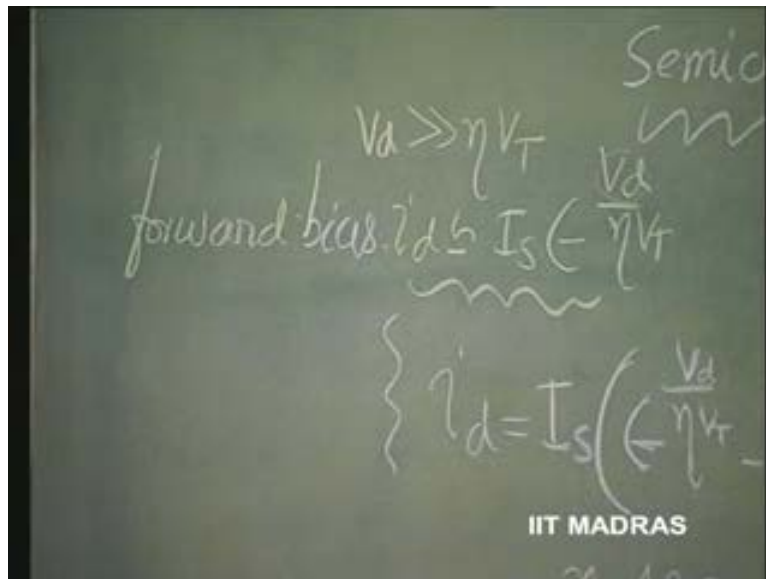 Semic
Vd >> ηVT
forward bias. id ≃ Is ϵ^(Vd/ηVT)
id = Is(ϵ^(Vd/ηVT) -
IIT MADRAS